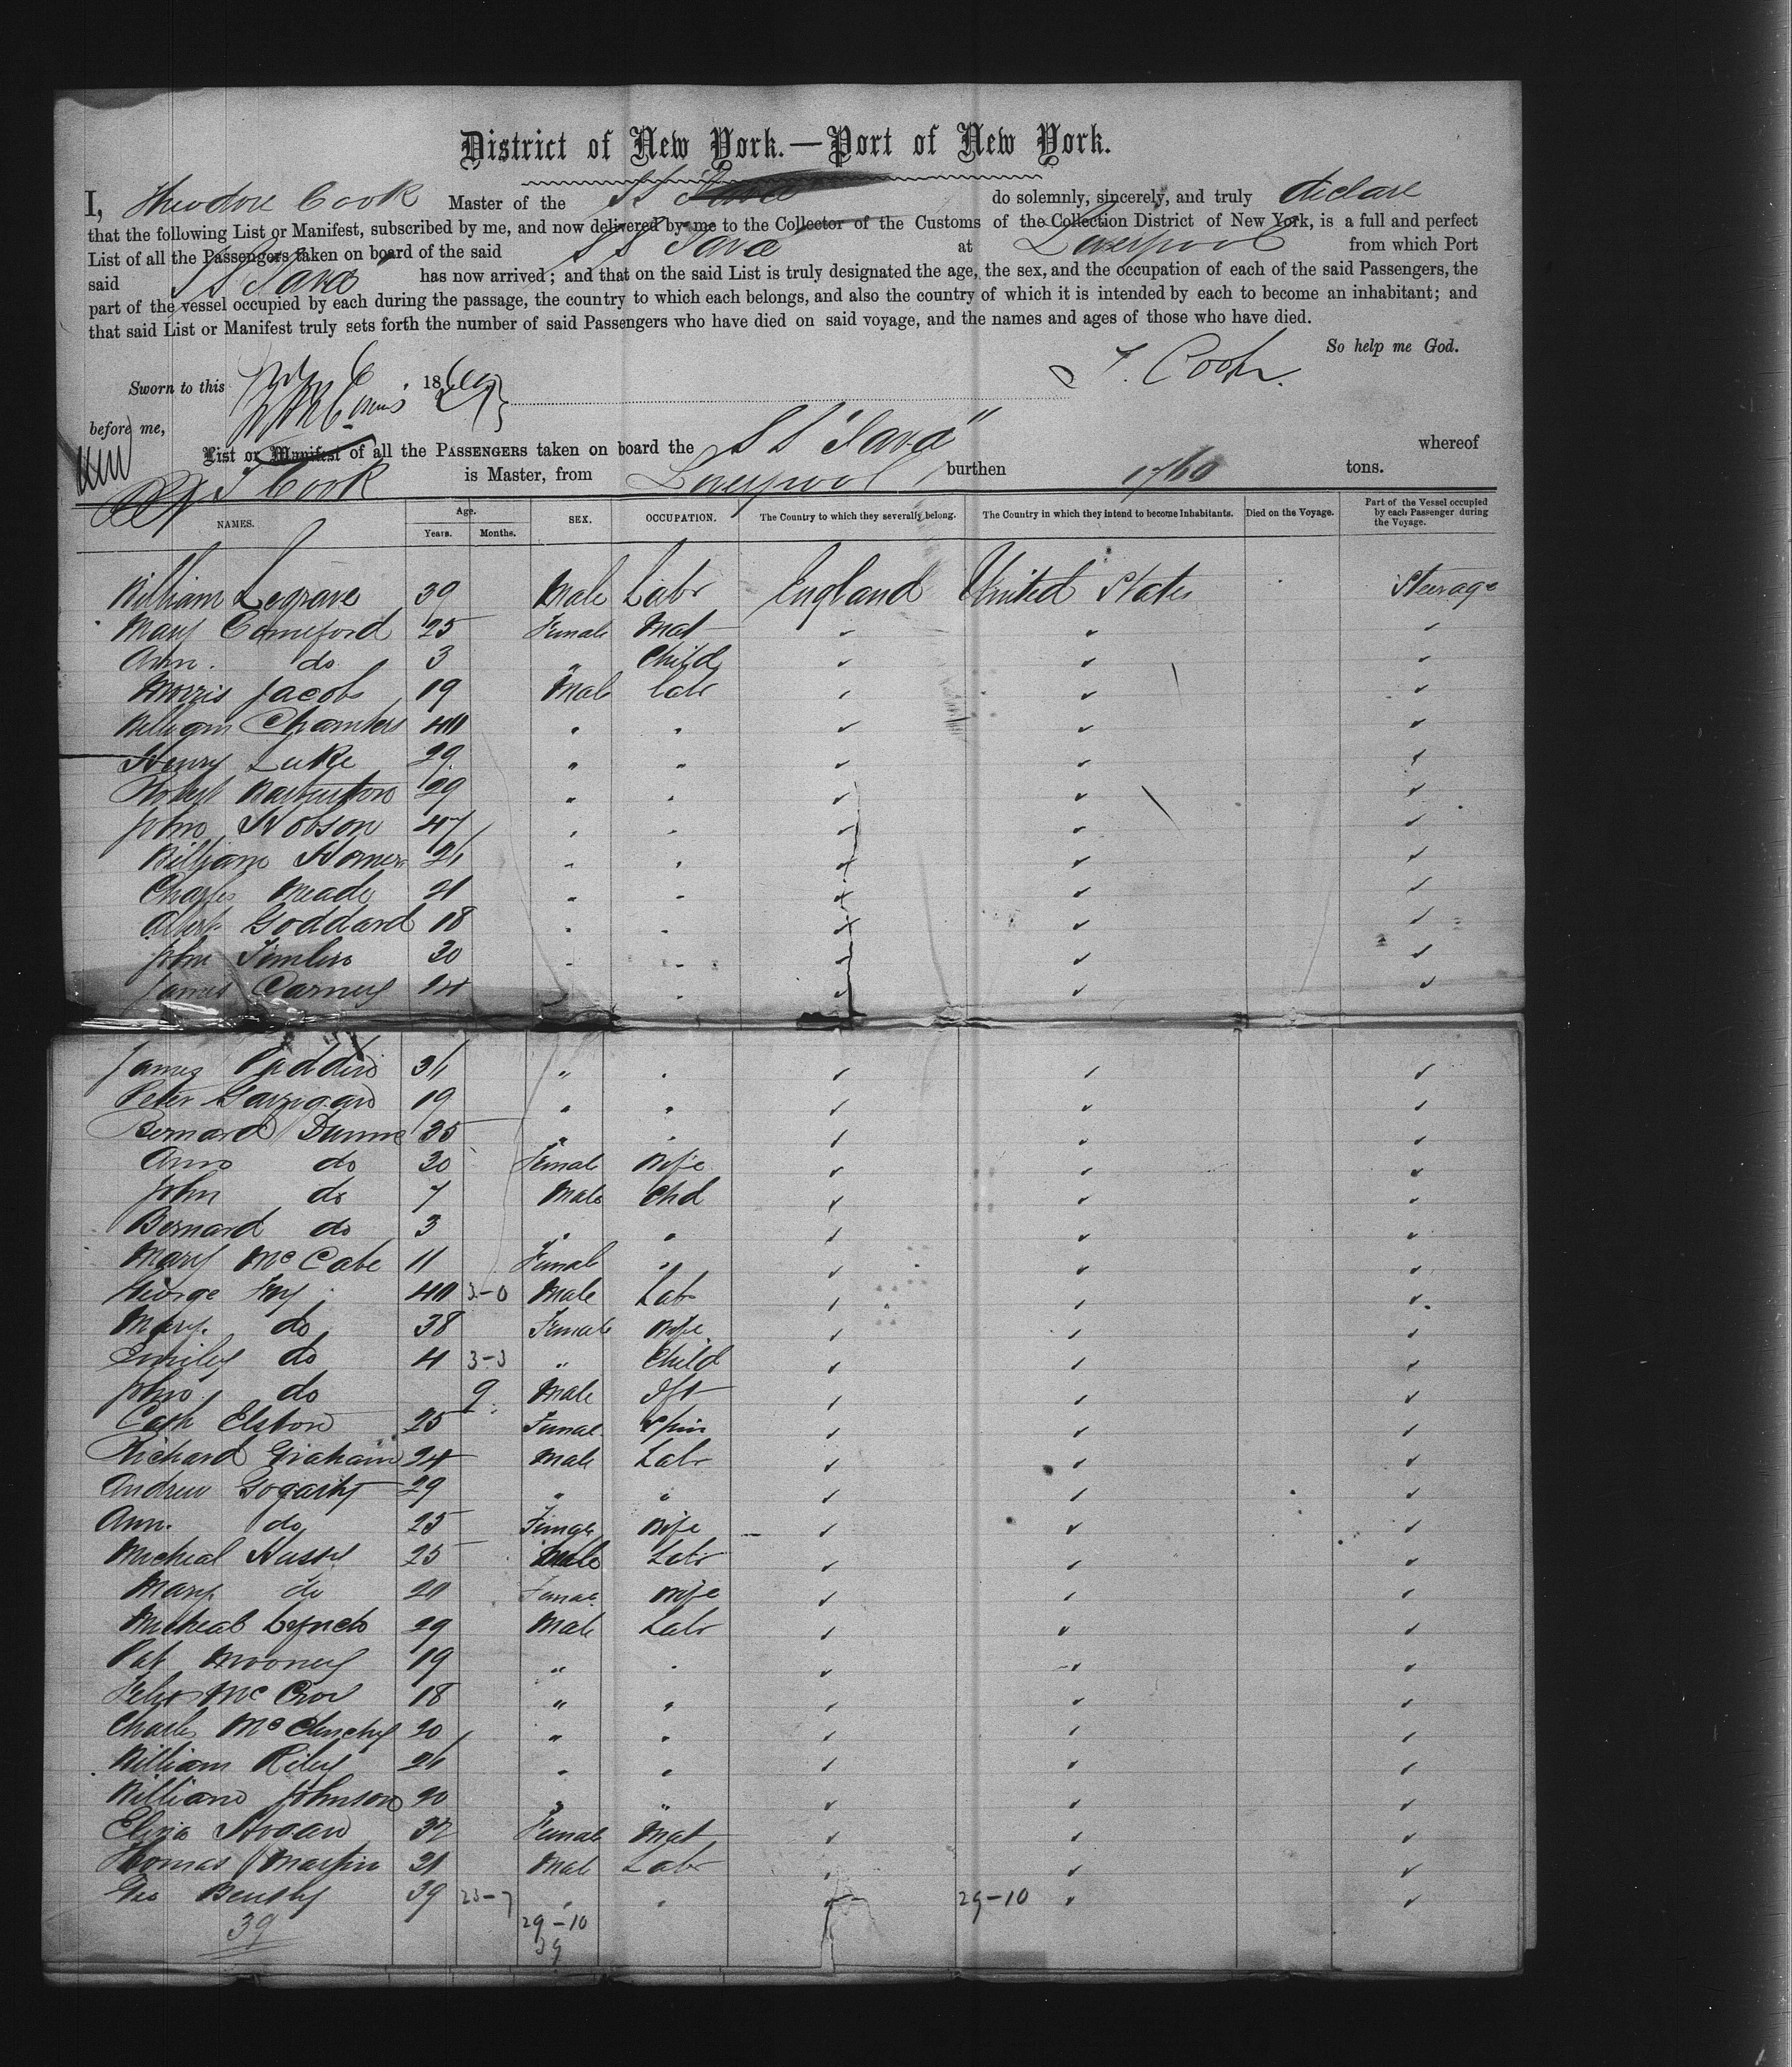 District of New York.—Port of New York.
I, Theodore Cook Master of the SS do solemnly, sincerely, and truly declare
that the following List or Manifest, subscribed by me, and now delivered by me to the Collector of the Customs of the Collection District of New York, is a full and perfect
List of all the Passengers taken on board of the said SS Java at Liverpool from which Port
said SS Java has now arrived; and that on the said List is truly designated the age, the sex, and the occupation of each of the said Passengers, the
part of the vessel occupied by each during the passage, the country to which each belongs, and also the country of which it is intended by each to become an inhabitant; and
that said List or Manifest truly sets forth the number of said Passengers who have died on said voyage, and the names and ages of those who have died.
So help me God.
Sworn to this 6, 1869 T. Cook.
before me,
List or Manifest of all the PASSENGERS taken on board the SS "Java" whereof
T Cook is Master, from Liverpool, burthen 1760 tons.
NAMES. Age. Years. Months. SEX. OCCUPATION. The Country to which they severally belong. The Country in which they intend to become Inhabitants. Died on the Voyage. Part of the Vessel occupied by each Passenger during the Voyage.
William Legrave 39 Male Labr England United States Steerage
Mary Comeford 25 Female Mat " " "
Ann. do 3 " Child " " "
Morris Jacobs 19 Male Labr " " "
William Chambers 40 " " " " "
Henry Luke 29 " " " " "
Robert 29 " " " " "
John Hobson 47 " " " " "
William Homer 26 " " " " "
Charles Meade 21 " " " " "
Albert Goddard 18 " " " " "
John 30 " " " " "
James Carney 24 " " " "
James 36 " " " " "
Peter Garrigan 19 " " " " "
Bernard Dunne 35 " " " " "
Ann do 30 Female Wife " " "
John do 7 Male Chd " " "
Bernard do 3 " " " " "
Mary McCabe 11 Female " " " "
George Fry 40 3-0 Male Labr " " "
Mary. do 38 Female Wife " " "
Emiley do 4 3-3 " Child " " "
John do 9 Male Ift " " "
Cath Elston 25 Female Spin " " "
Richard Graham 24 Male Labr " " "
Andrew Gogarty 29 " " " " "
Ann. do 25 Female Wife " " "
Micheal Hussy 25 Male Labr " " "
Mary do 20 Female Wife " " "
Micheal Lynch 29 Male Labr " " "
Pat Mooney 19 " " " " "
Felix Mc 18 " " " " "
Charles McClenchy 20 " " " " "
William Riley 26 " " " " "
William Johnson 20 " " " " "
Eliza Hogan 32 Female Mat " " "
Thomas Martin 21 Male Labr " " "
Geo 39 23-7 " " " 29-10 " "
39 29-10
39